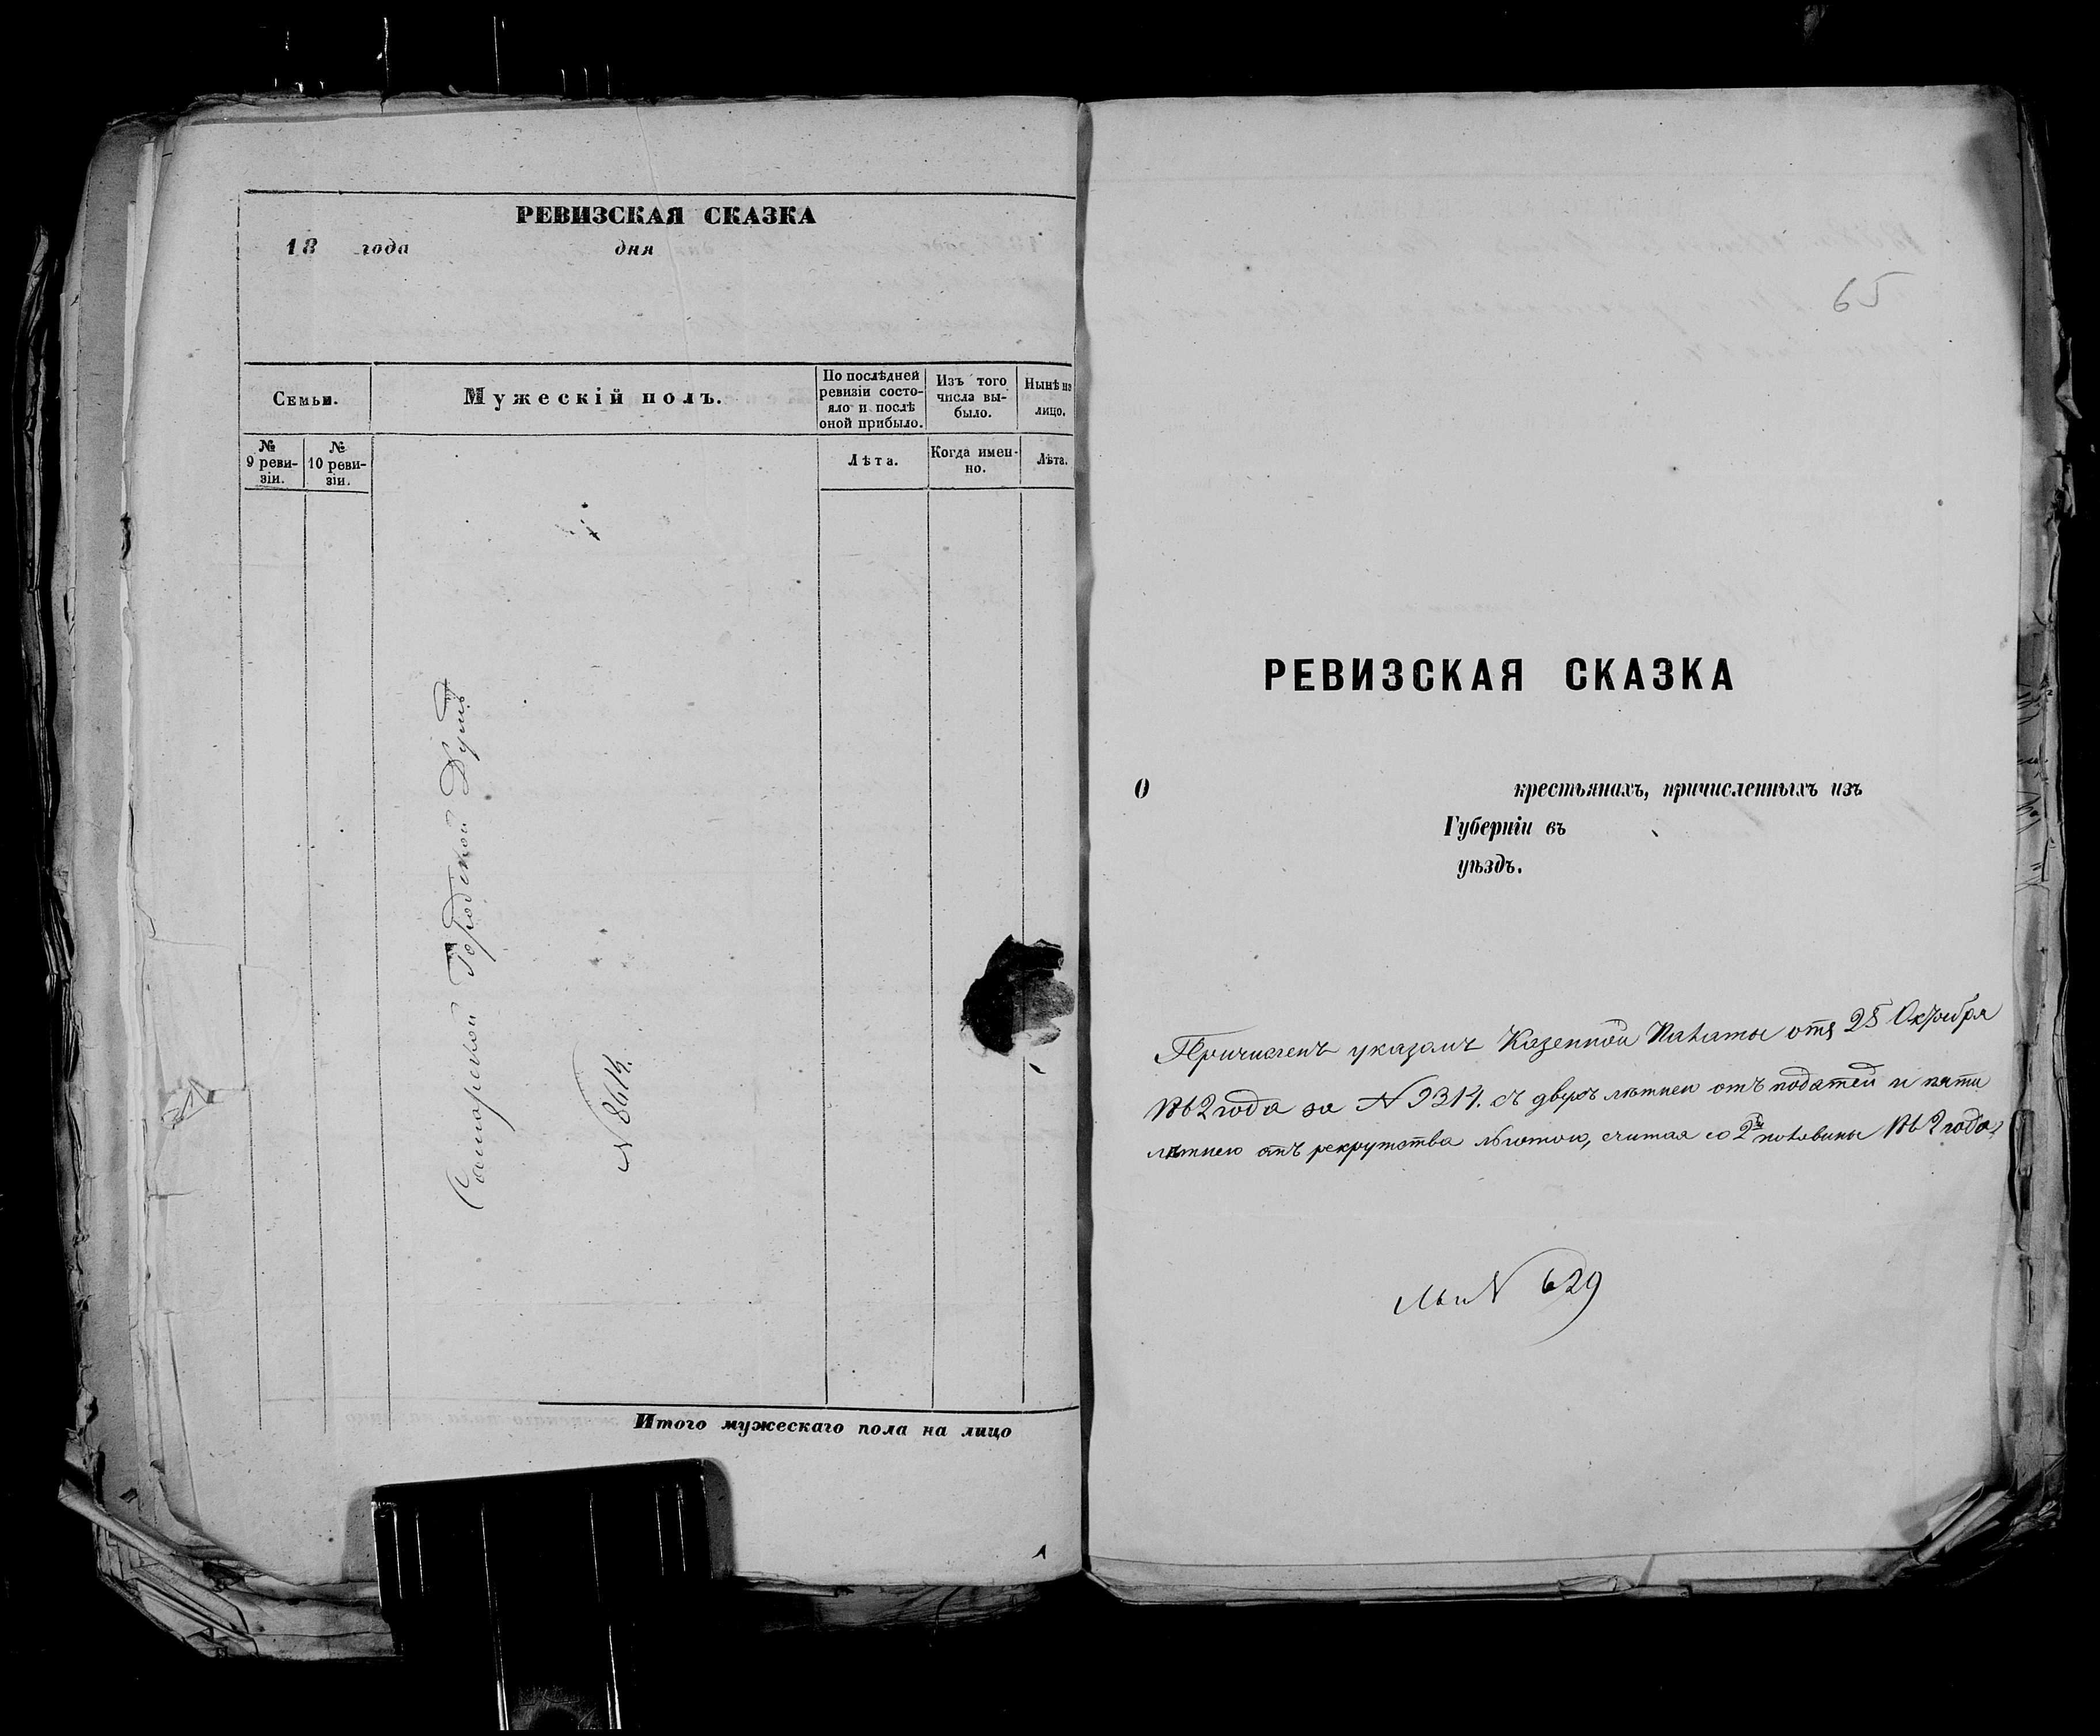 РЕВИЗСКАЯ СКАЗКА
18 года дня
Семьи.
Мужескій полъ.
По послѣдней ревизіи состояло и послѣ оной прибыло.
Изъ того числа выбыло.
Нынѣ на лицо.
№ 9 ревизіи.
№ 10 ревизіи.
Лѣта.
Когда именно.
Лѣта.
Самарской Городской Думѣ
N 8614.
Итого мужескаго пола на лицо
65
РЕВИЗСКАЯ СКАЗКА
О крестьянахъ, причисленныхъ изъ
Губерніи въ
уѣздъ.
Причисленъ указомъ Казенной Палаты отъ 25 Октября
1862 года за N 9314. съ двухъ лѣтнею отъ податей и пяти
лѣтнею отъ рекрутства льготою, считая со 2й половины 1862 года,
N 629